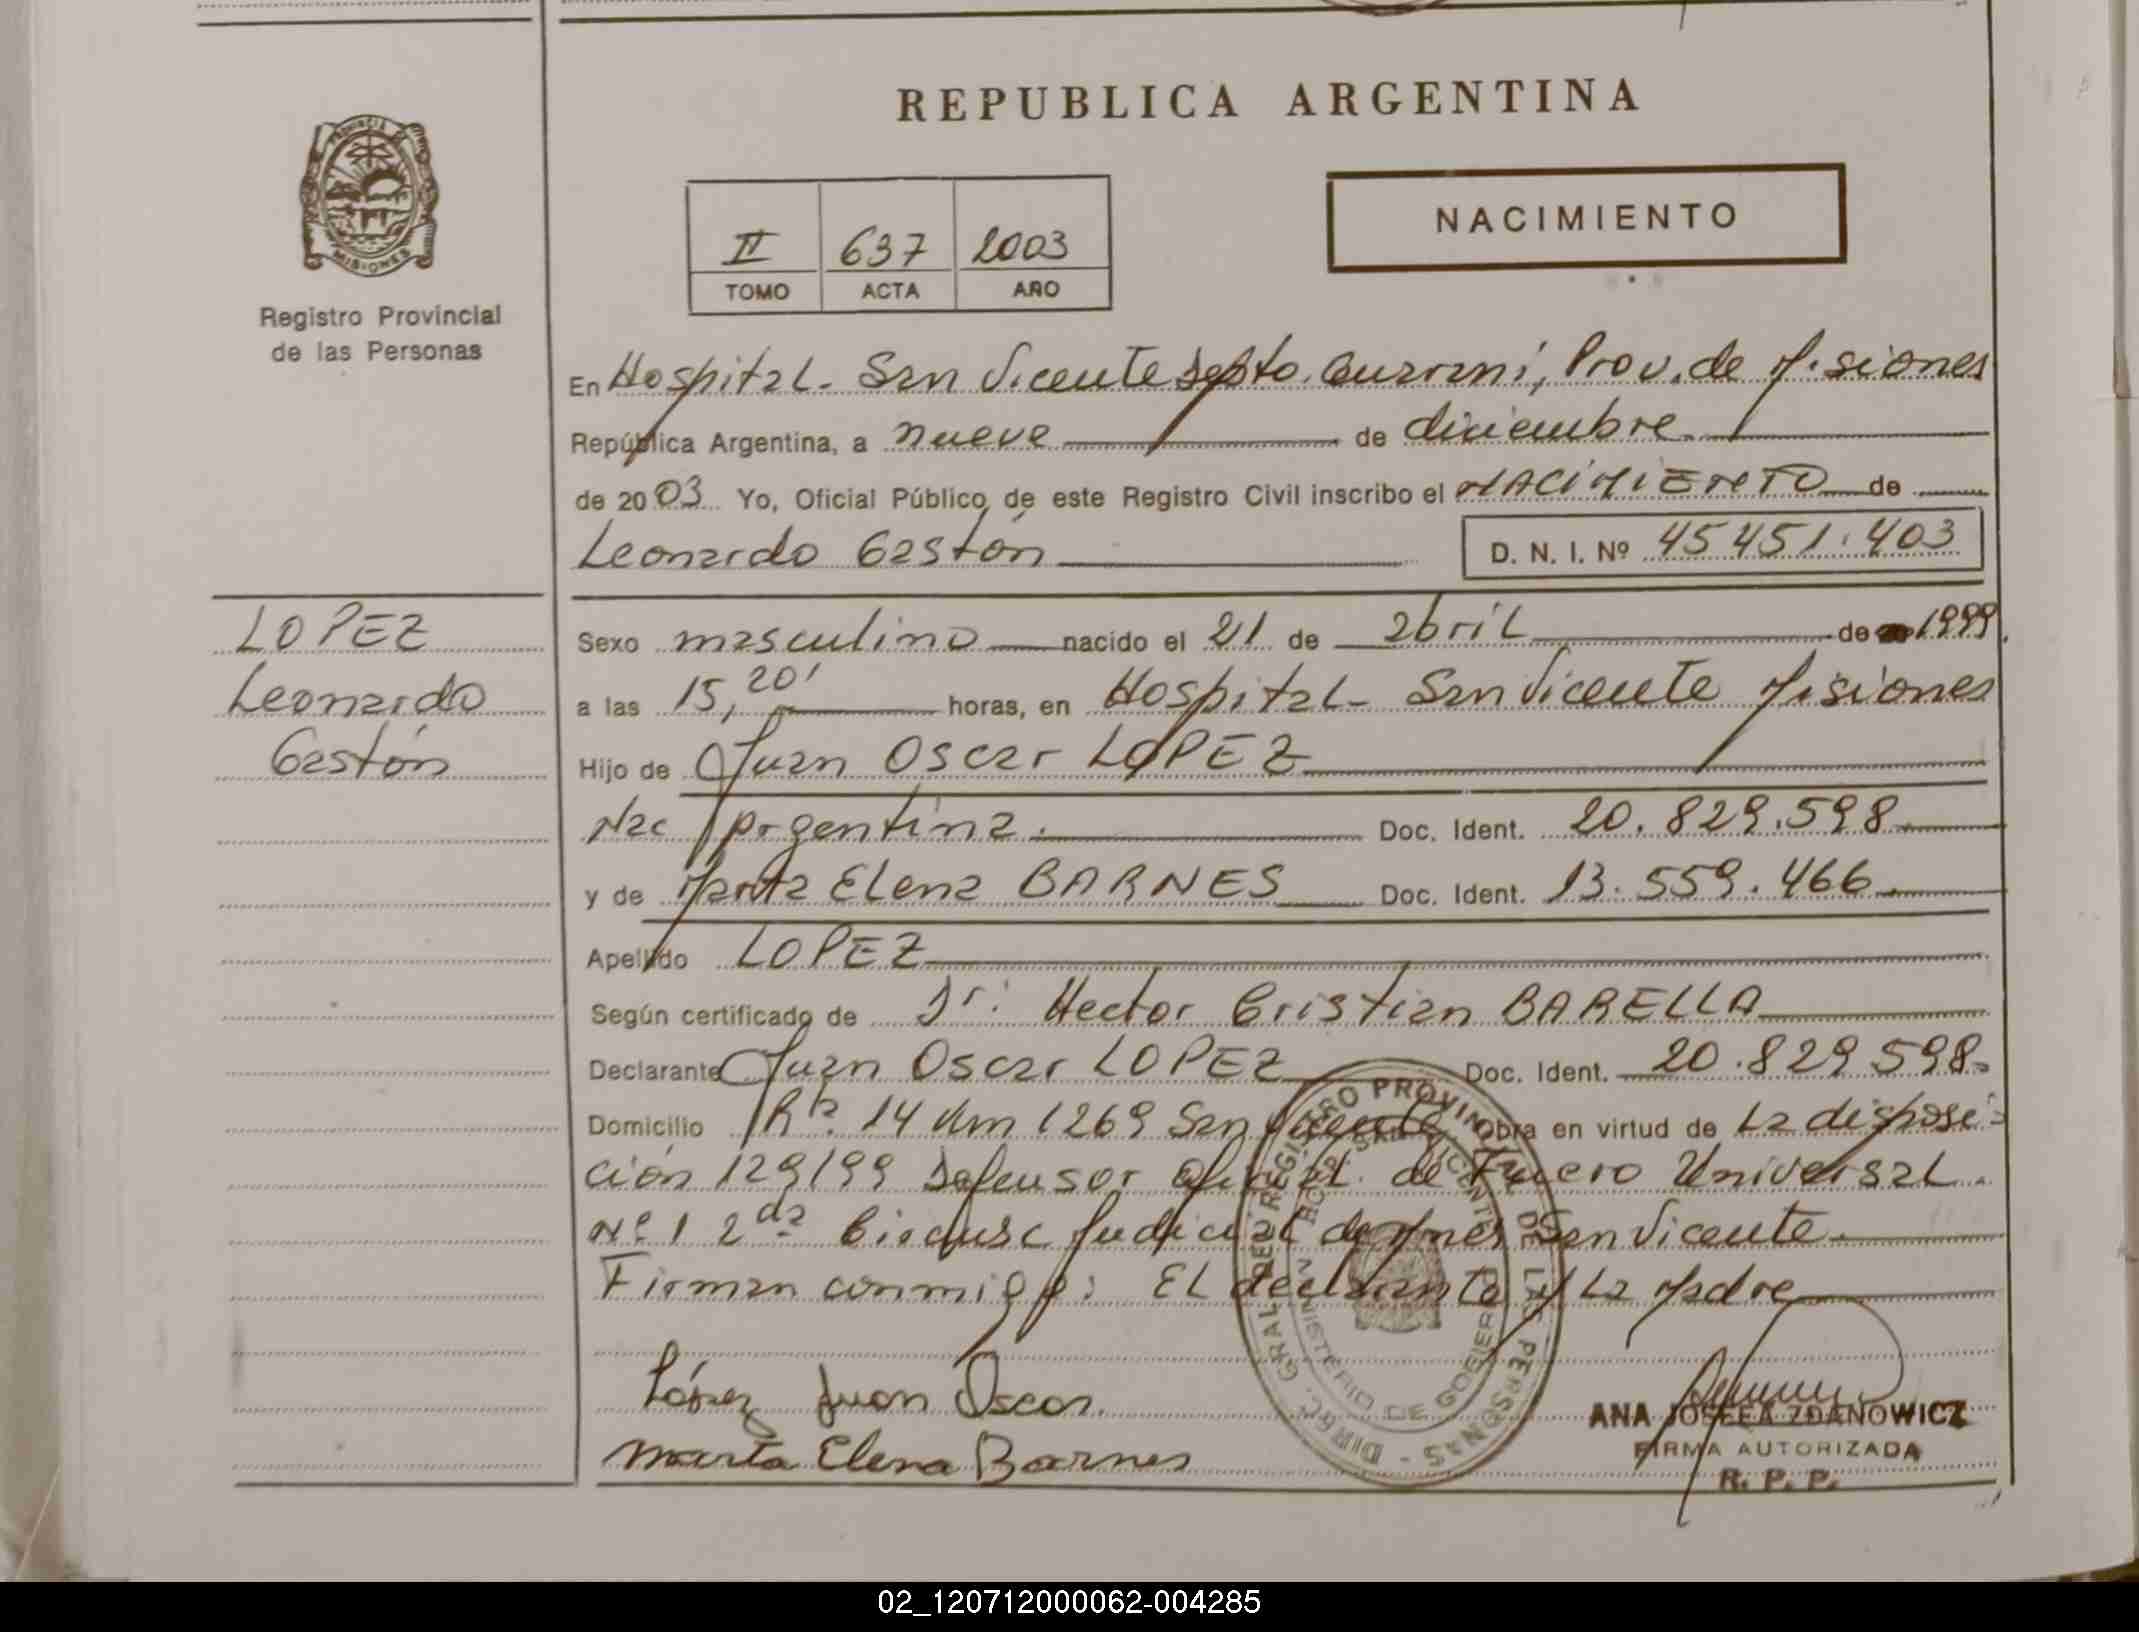 REPUBLICA ARGENTINA
PROVINCIA DE MISIONES
Registro Provincial
de las Personas
II 637 2003
TOMO ACTA AÑO
NACIMIENTO
En Hospital- San Vicente Depto. Guaraní, Prov. de Misiones
República Argentina, a nueve de diciembre
de 2003 Yo, Oficial Público de este Registro Civil inscribo el NACIMIENTO de
Leonardo Gastón D. N. I. Nº 45451.403
LOPEZ
Leonardo
Gastón
Sexo masculino nacido el 21 de abril de 1999.
a las 15,20' horas, en Hospital- San Vicente Misiones
Hijo de Juan Oscar LOPEZ
Nac Argentina. Doc. Ident. 20.829.598.
y de Marta Elena BARNES Doc. Ident. 13.559.466.
Apellido LOPEZ
Según certificado de Dr. Hector Cristian BARELLA
Declarante Juan Oscar LOPEZ Doc. Ident. 20.829 598.
Domicilio Rta. 14 Km 1269 San Vicente Obra en virtud de La disposi-
ción 129/99 Defensor Oficial. de Fuero Universal.
Nº 1 2da Circunsc Judicial de Mnes San Vicente.
Firman conmigo: El declarante y La Madre
López Juan Oscar.
Marta Elena Barnes
DIREC. GRAL. DEL REGISTRO PROVINCIAL DE LAS PERSONAS -
MINISTERIO DE GOBIERNO
SAN VICENTE
ANA JOSEFA ZDANOWICZ
FIRMA AUTORIZADA
R. P. P.
02_120712000062-004285